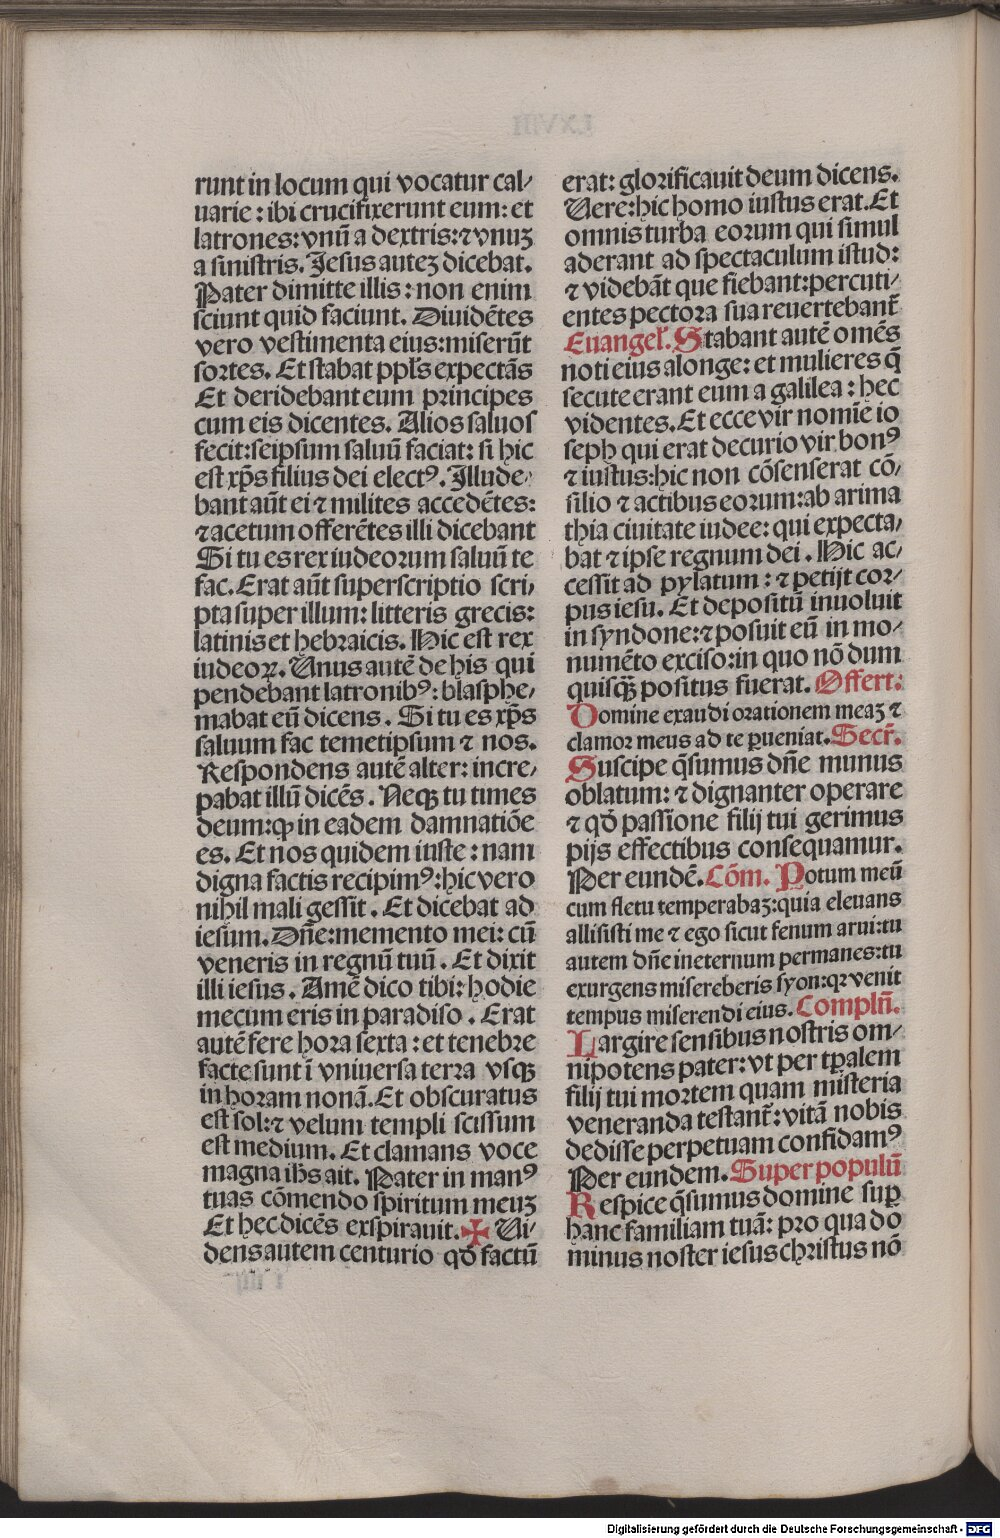 runt in locum qui vocatur cal⸗
uarie : ibi crucifixerunt eum: et
latrones: vnū a dextris: ⁊ vnuꝫ
a sinistris. Jesus auteꝫ dicebat.
Pater dimitte illis : non enim
sciunt quid faciunt. Diuidētes
vero vestimenta eius: miserūt
sortes. Et stabat ppl's expectās
Et deridebant eum principes
cum eis dicentes. Alios saluos
fecit: seipsum saluū faciat: si hic
est xp̄s filius dei electꝰ. Illude⸗
bant aūt ei ⁊ milites accedētes:
⁊ acetum offerētes illi dicebant
Si tu es rex iudeorum saluū te
fac. Erat aūt superscriptio scri⸗
pta super illum: litteris grecis:
latinis et hebraicis. Hic est rex
iudeoꝝ. Unus autē de his qui
pendebant latronibꝰ: blasphe⸗
mabat eū dicens. Si tu es xp̄s
saluum fac temetipsum ⁊ nos.
Respondens autē alter: incre⸗
pabat illū dicēs. Neqꝫ tu times
deum: ꝙ in eadem damnatiōe
es. Et nos quidem iuste : nam
digna factis recipimꝰ: hic vero
nihil mali gessit. Et dicebat ad
iesum. Dn̄e: memento mei: cū
veneris in regnū tuū. Et dixit
illi iesus. Amē dico tibi: hodie
mecum eris in paradiso. Erat
autē fere hora sexta : et tenebre
facte sunt ī vniuersa terra vsqꝫ
in horam nonā. Et obscuratus
est sol: ⁊ velum templi scissum
est medium. Et clamans voce
magna ihs ait. Pater in manꝰ
tuas cōmendo spiritum meuꝫ
Et hec dicēs exspirauit. ✠ Ui⸗
dens autem centurio qd̄ factū
erat: glorificauit deum dicens.
Uere: hic homo iustus erat. Et
omnis turba eorum qui simul
aderant ad spectaculum istud:
⁊ videbāt que fiebant: percuti⸗
entes pectora sua reuertebant̄
Euangel'. Stabant autē omēs
noti eius alonge: et mulieres q̄
secute erant eum a galilea : hec
videntes. Et ecce vir nomīe io
seph qui erat decurio vir bonꝰ
⁊ iustus: hic non cōsenserat cō⸗
silio ⁊ actibus eorum: ab arima
thia ciuitate iudee: qui expecta⸗
bat ⁊ ipse regnum dei. Hic ac⸗
cessit ad pylatum : ⁊ petijt cor⸗
pus iesu. Et depositū inuoluit
in syndone: ⁊ posuit eū in mo⸗
numēto exciso: in quo nō dum
quisqꝫ̄ positus fuerat. Offert.
Domine exaudi orationem meaꝫ ⁊
clamor meus ad te ꝑueniat. Secr̄.
Suscipe q̄sumus dn̄e munus
oblatum: ⁊ dignanter operare
⁊ qd̄ passione filij tui gerimus
pijs effectibus consequamur.
Per eundē. Cōm. Potum meū
cum fletu temperabaꝫ: quia eleuans
allisisti me ⁊ ego sicut fenum arui: tu
autem dn̄e in eternum permanes: tu
exurgens misereberis syon: qꝛ venit
tempus miserendi eius. Compln̄.
Largire sensibus nostris om⸗
nipotens pater: vt per tp̄alem
filij tui mortem quam misteria
veneranda testant̄: vitā nobis
dedisse perpetuam confidamꝰ
Per eundem. Super populū
Respice q̄sumus domine suꝑ
hanc familiam tuā: pro qua do
minus noster iesus christus nō
Digitalisierung gefördert durch die Deutsche Forschungsgemeinschaft - DFG